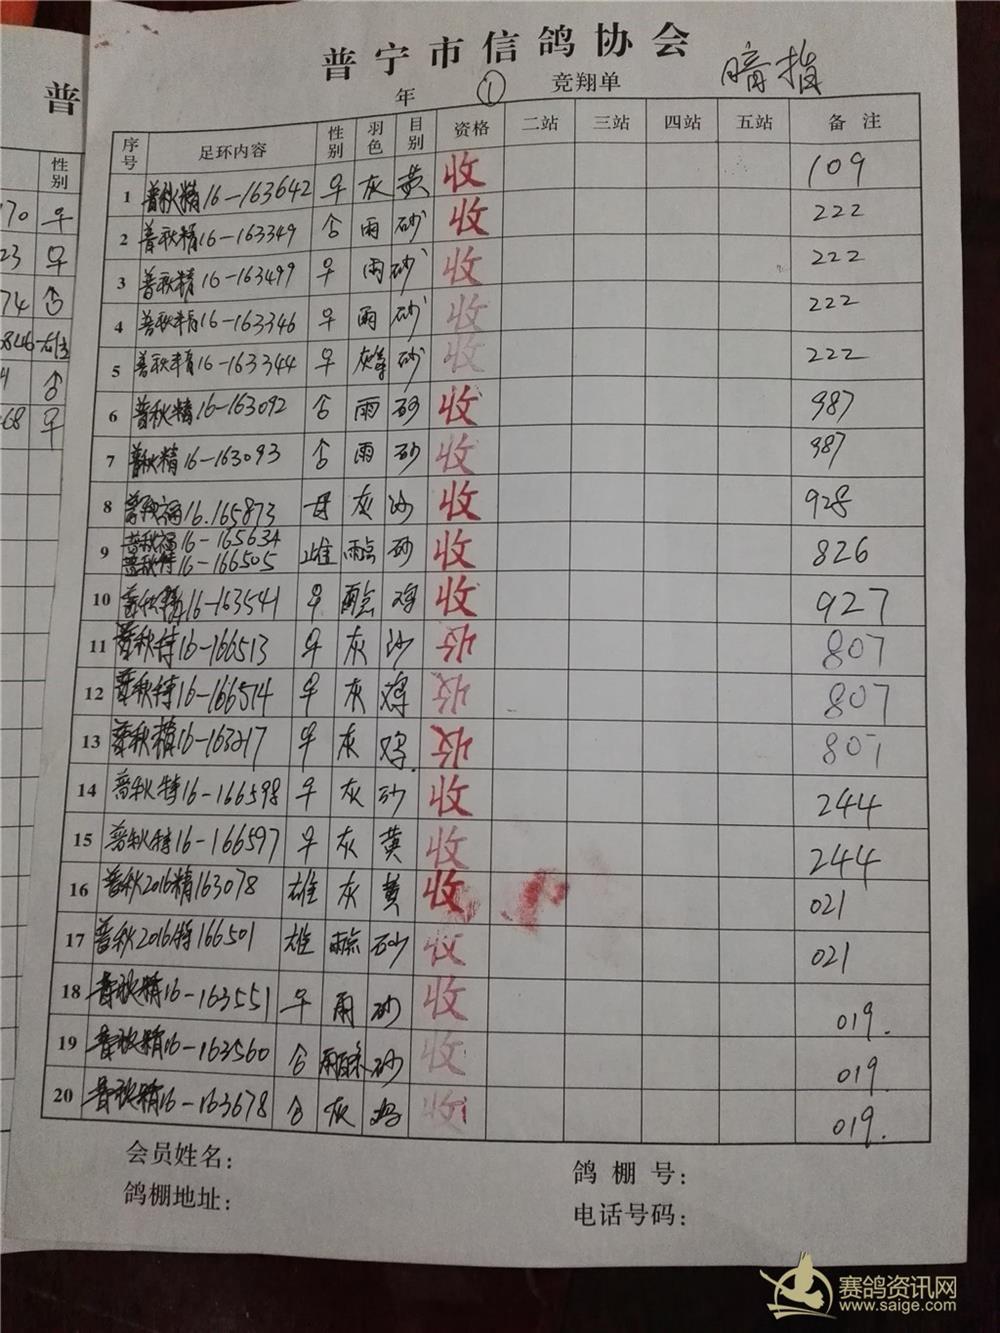 普宁市信鸽协会
年 ① 竞翔单 暗指
序号 足环内容 性别 羽色 目别 资格 二站 三站 四站 五站 备注
1 普秋精16-163642 ♀ 灰 黄 收 109
2 普秋精16-163349 雨 砂 收 222
3 普秋精16-163499 ♀ 雨 砂 收 222
4 普秋精16-163346 ♀ 雨 砂 收 222
5 普秋精16-163344 ♀ 砂 收 222
6 普秋精16-163092 雨 砂 收 987
7 普秋精16-163093 雨 砂 收 987
8 普秋福16.165873 母 灰 沙 收 928
9 普秋福16-165634 普秋特16-166505 雌 雨点 砂 收 826
10 普秋精16-163541 ♀ 雨点 鸡 收 927
11 普秋特16-166513 ♀ 灰 沙 收 807
12 普秋特16-166514 ♀ 灰 鸡 收 807
13 普秋精16-163217 ♀ 灰 鸡. 收 807
14 普秋特16-166598 ♀ 灰 砂 收 244
15 普秋特16-166597 ♀ 灰 黄 收 244
16 普秋2016精163078 雄 灰 黄 收 021
17 普秋2016特166501 雄 雨点 砂 收 021
18 普秋精16-163551 ♀ 雨 砂 收 019.
19 普秋精16-163560 砂 收 019.
20 普秋精16-163678 灰 收 019.
会员姓名： 鸽棚号：
鸽棚地址： 电话号码：
普
性别
170 ♀
23 ♀
74 ♂
♂
68 ♀
赛鸽资讯网
www.saige.com